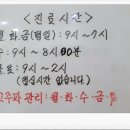 <진료시간>
월화금(평일): 9시~7시
수: 9시~8시00분
목.토: 9시~2시
(점심시간 없습니다)
고주파 관리: 월·화·수·금·토